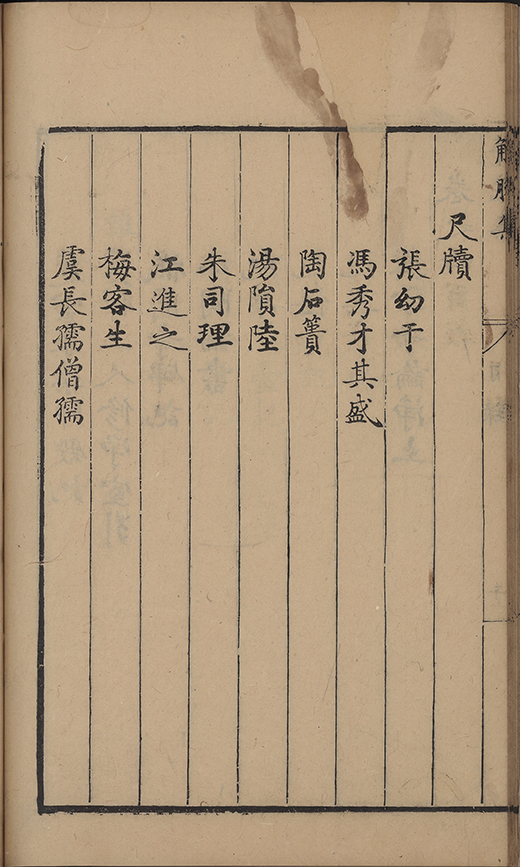 解脫集
尺牘
張幼于
馮秀才其盛
陶石簣
湯隕陸
朱司理
江進之
梅客生
虞長孺僧孺